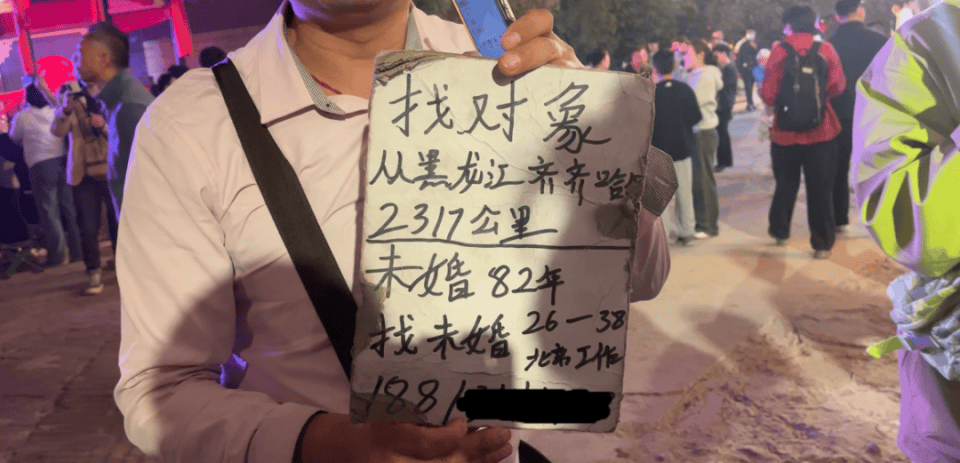 找对象
从黑龙江齐齐哈
2317公里
未婚 82年
找未婚 26-38
北京工作
188